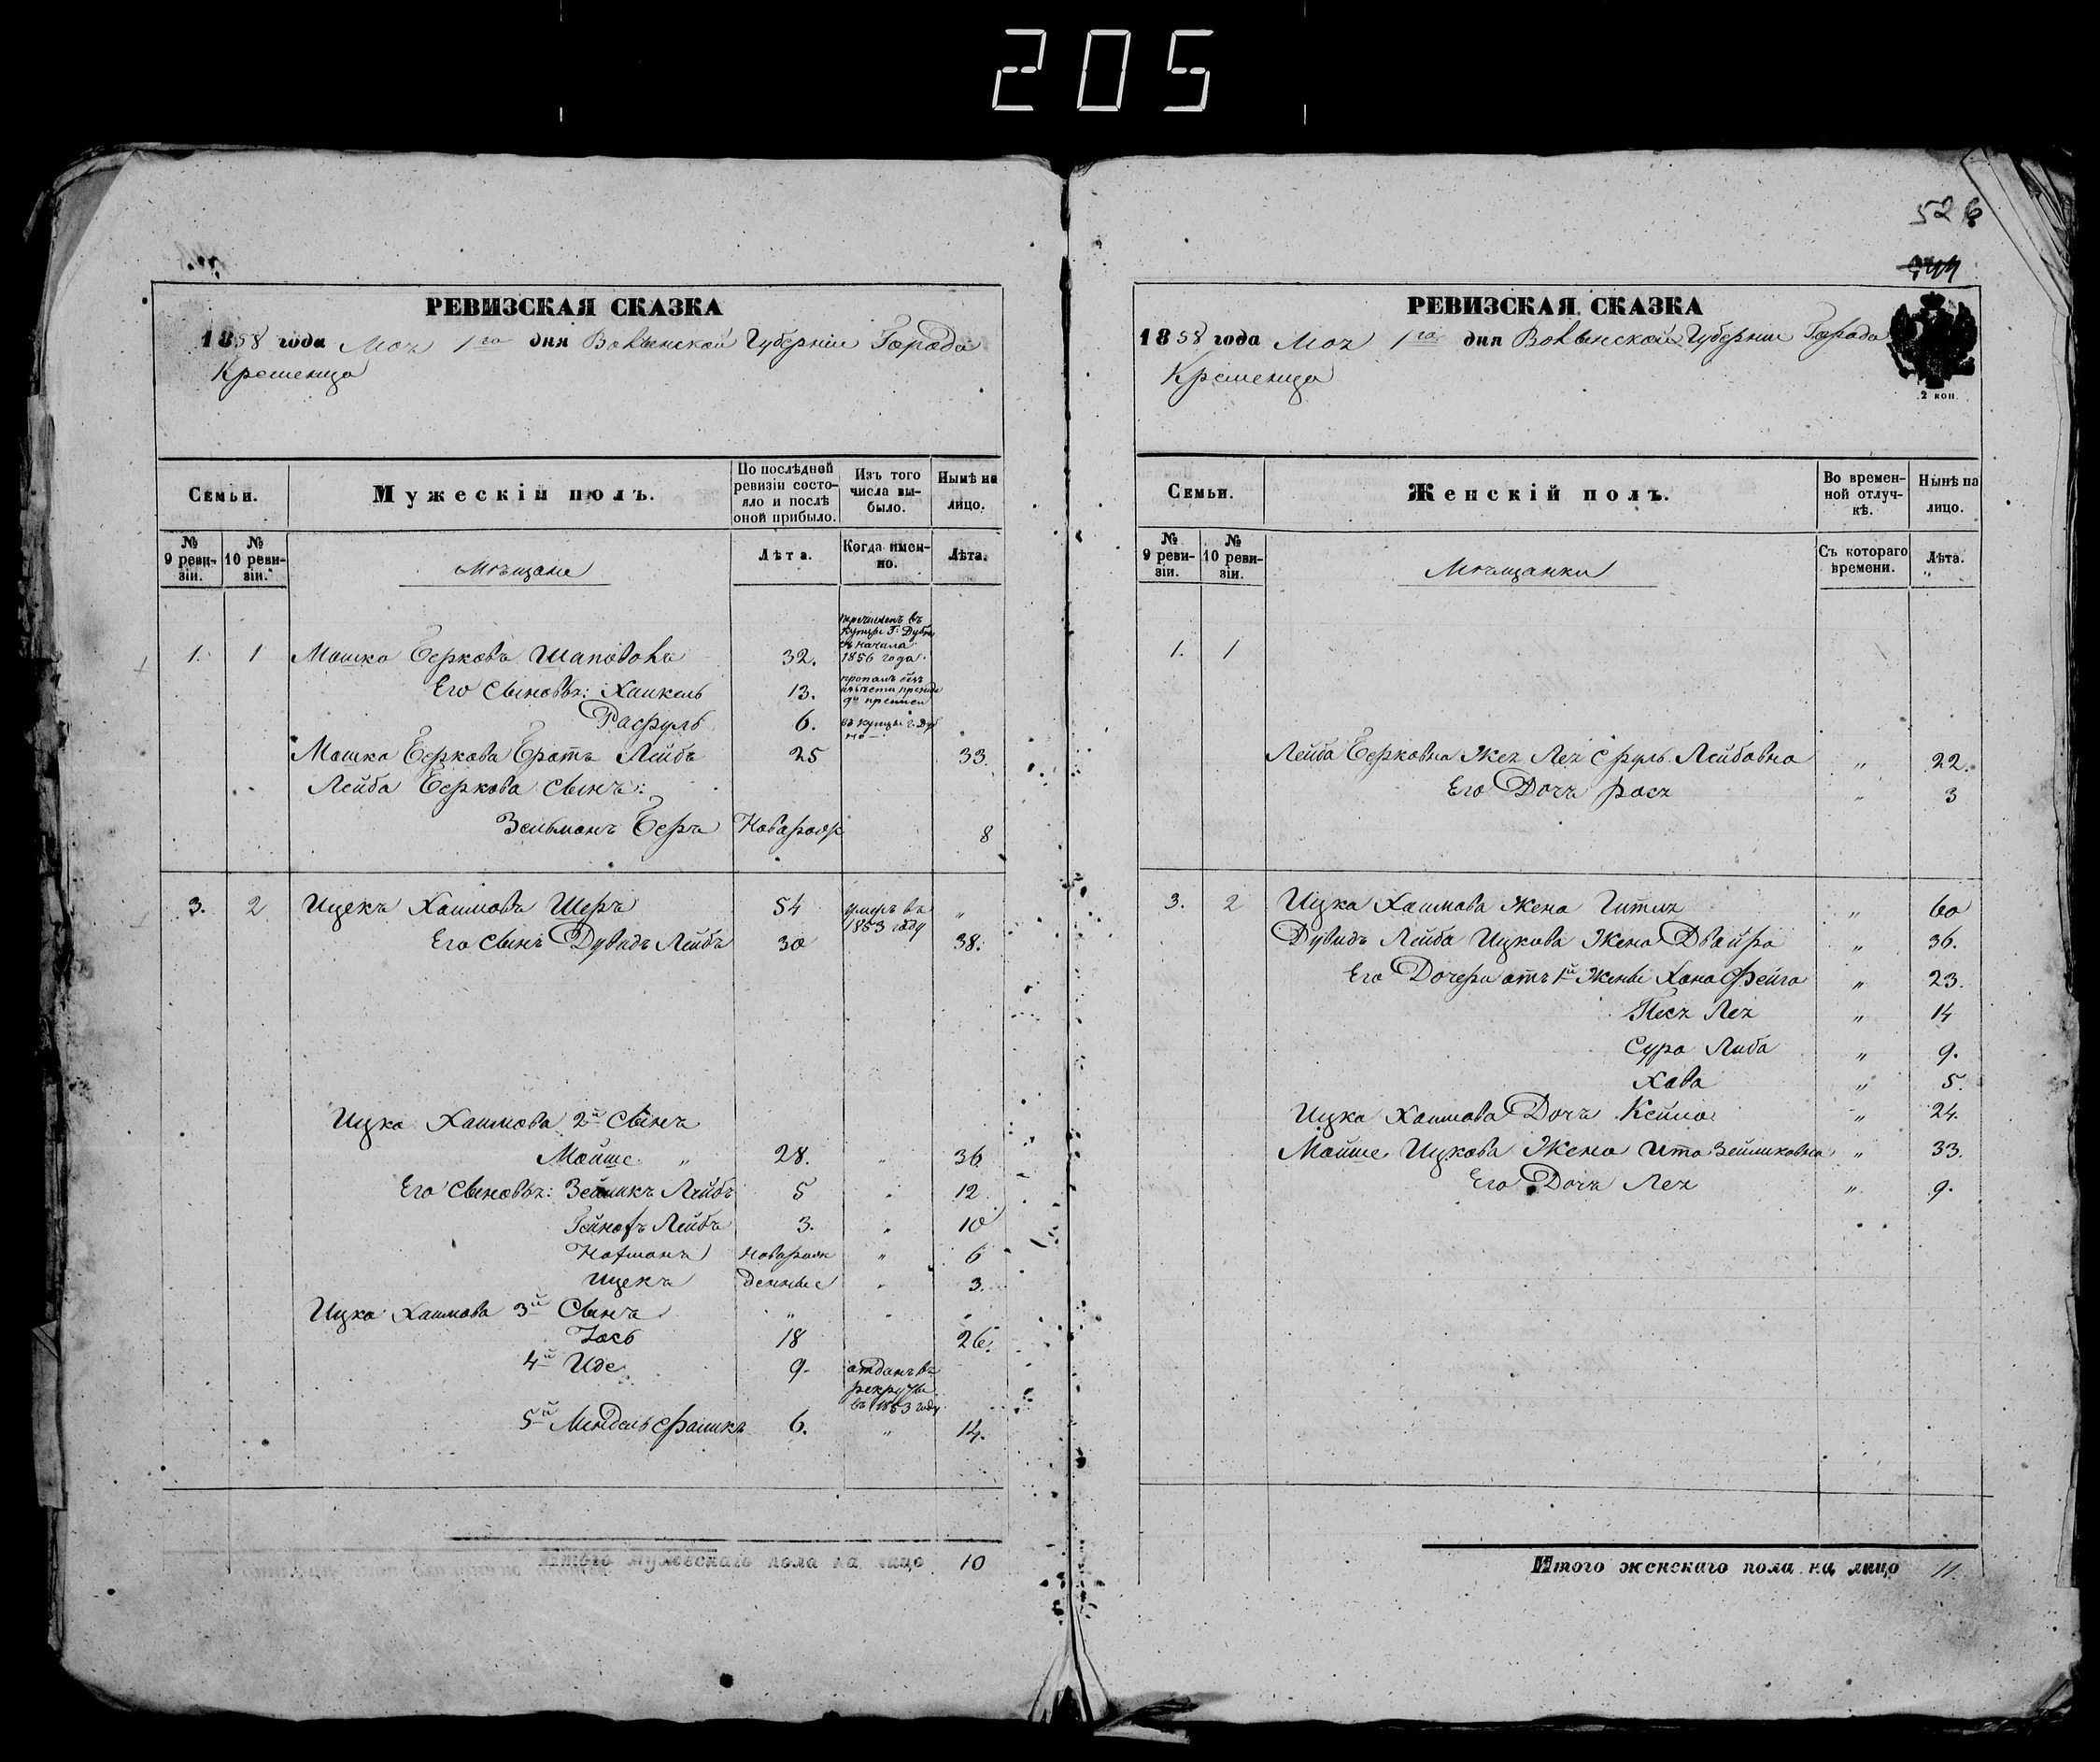 205
РЕВИЗСКАЯ СКАЗКА
1858 года Мая 1го дня Волынской Губерніи Города
Кременца
Семьи.
Мужескій полъ.
По послѣдней ревизіи состояло и послѣ оной прибыло.
Изъ того числа выбыло.
Нынѣ на лицо.
№ 9 ревизіи.
№ 10 ревизіи.
Мѣщане
Лѣта.
Когда именно.
Лѣта.
1. 1 Мошко Берковъ Шаповалъ 32. перечисленъ въ купцы Г: Дубна съ начала 1856 года
Его сыновья: Хаикель 13.
Расруль 6. въ купцы г. Дубно
Мошка Беркова Братъ Лейба 25 33.
Лейба Беркова сынъ:
Зельманъ Беръ Новорож 8
3. 2 Ицекъ Хаимовъ Шеръ 54 умеръ въ 1853 году "
Его сынъ Дувидъ Лейбъ 30 38.
Ицка Хаимова 2й сынъ
Мойше " 28. " 36
Его сыновья: Зейликъ Лейбъ 5 " 12
Лейбъ 3. " 10
новорож " 6
Ицекъ денные " 3.
Ицка Хаимова 3й Сынъ " " "
Іось 18 26.
4й Иде 9. отданъ въ рекруты въ 1853 году
5й 6. " 14.
Итого мужескаго пола на лицо 10
526
РЕВИЗСКАЯ СКАЗКА
1858 года Мая 1го дня Волынской Губерніи Города
Кременца
2 коп.
Семьи.
Женскій полъ.
Во временной отлучкѣ.
Нынѣ на лицо.
№ 9 ревизіи.
№ 10 ревизіи.
Мѣщанки
Съ котораго времени.
Лѣта.
1. 1
Лейба Берковна Жея Лея Сруль Лейбовна " 22.
Его Дочь Рося " 3
3. 2 Ицка Хаимова Жена Гитля " 60
Дувидъ Лейба Ицкова Жена Двойра " 36.
Его Дочери отъ 1й Жены Хана Фейга " 23.
Песя Лея " 14
Сура Либа " 9.
Хава " 5.
Ицка Хаимова Дочь Кейла " 24.
Мойше Ицкова Жена Ита Зейликовна " 33.
Его Дочь Лея " 9.
Итого женскаго пола на лицо 11.